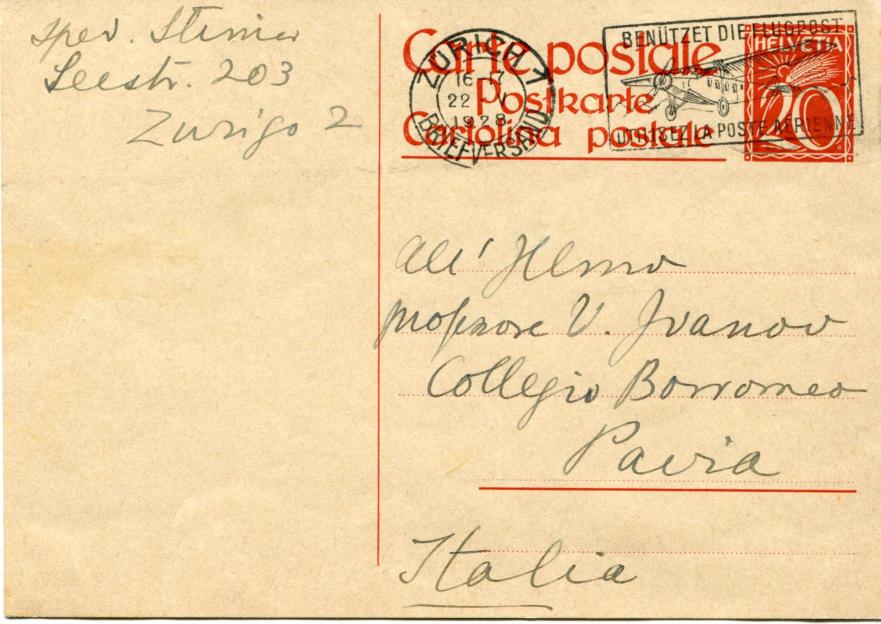 sped. Steiner
Seestr. 203
Zurigo 2
Carte postale
Postkarte
Cartolina postale
ZÜRICH 1
16-17
22 V
1928
BRIEFVERSAND
BENÜTZET DIE FLUGPOST
UTILISEZ LA POSTE AÉRIENNE
HELVETIA
20
All' Illmo
professore V. Ivanov
Collegio Borromeo
Pavia
Italia